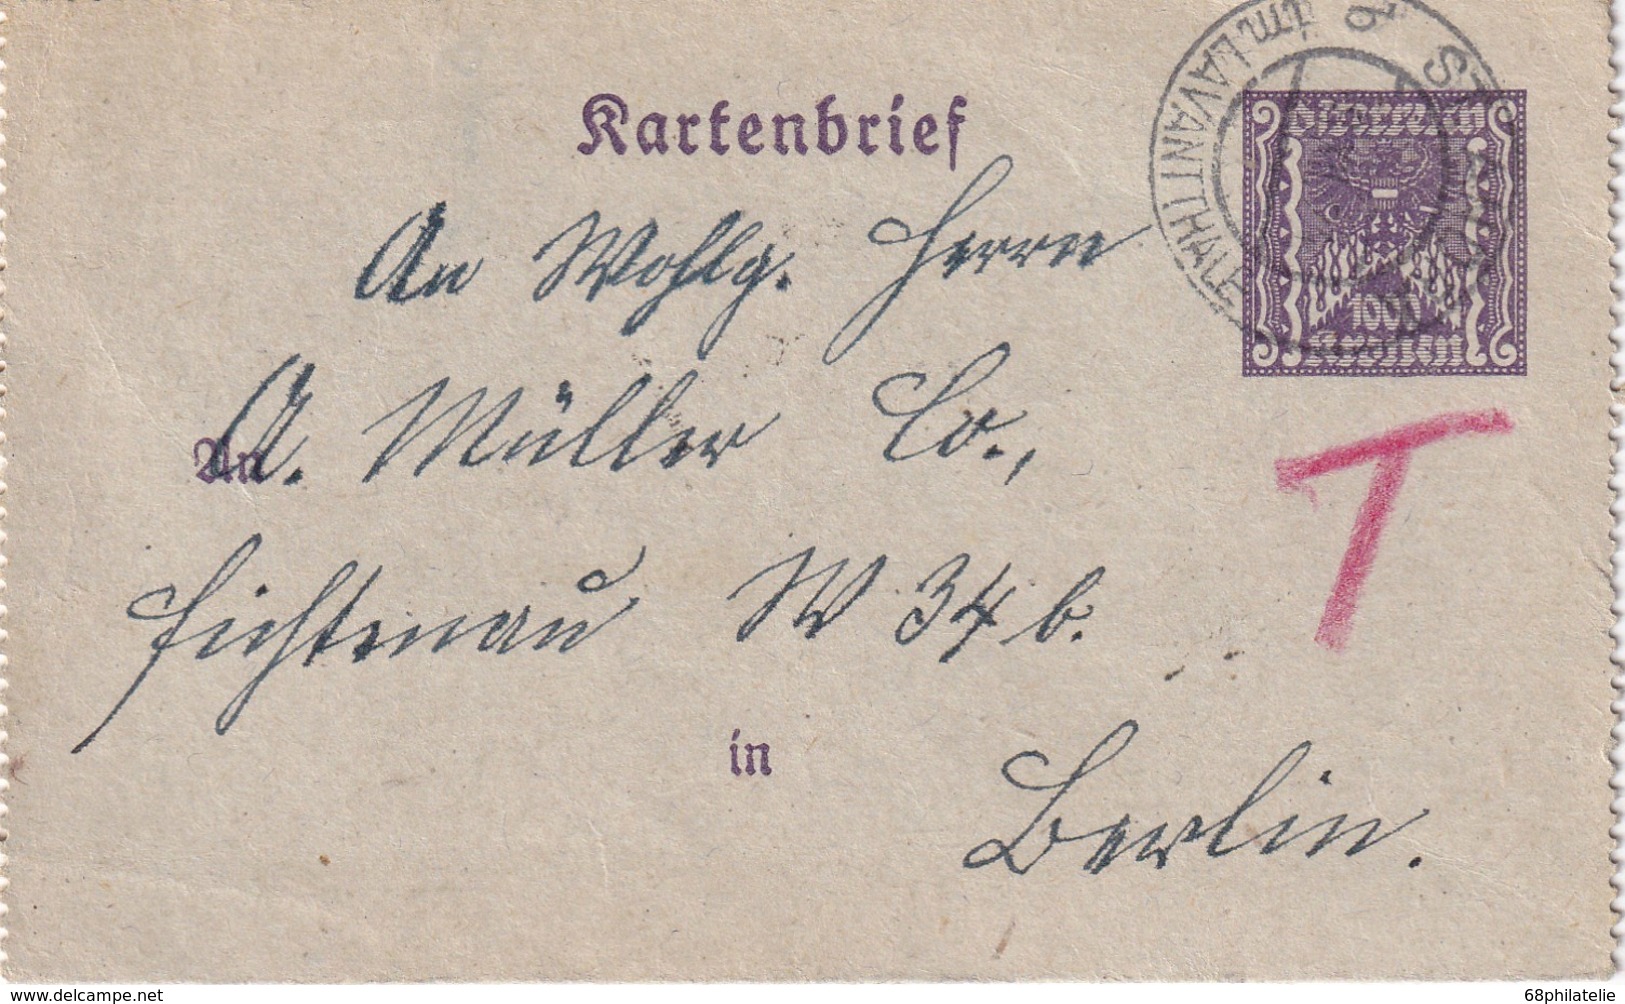 Kartenbrief
im LAVANTTHALE
1000
Kronen
An Wohlg. Herrn
An
A. Müller Co.,
Fichtenau W 34 b.
T
in
Berlin.
www.delcampe.net
68philatelie